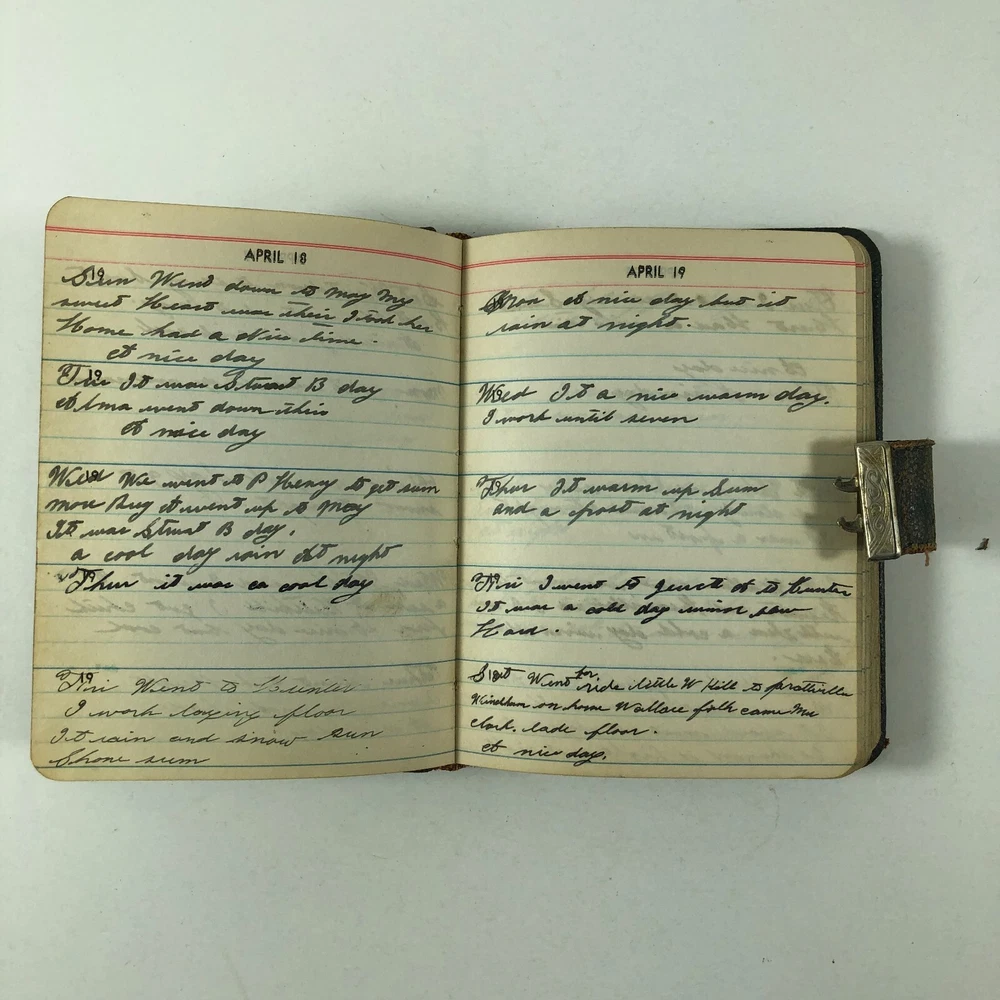 APRIL 18
Sun Went down to May My
sweet Heart was their I took her
Home had a Nice time.
A nice day
Tue It was Stuart B day
Alma went down their
A nice day
Wed We went to P Henry to get sum
more Rug A went up to May
It was Stuart B day.
a cool day rain At night
Thur it was a cool day
Fri Went to Hunter
I work laying floor
It rain and snow sun
Shone sum
APRIL 19
Mon A nice day but it
rain at night.
Wed It a nice warm day.
I work until seven
Thur It warm up Sum
and a frost at night
Fri I went to to Hunter
It was a cold day
Hard.
Sat Went for ride little W Kill to prattville
Windham on home Wallace folk came
clock. lade floor.
A nice day.